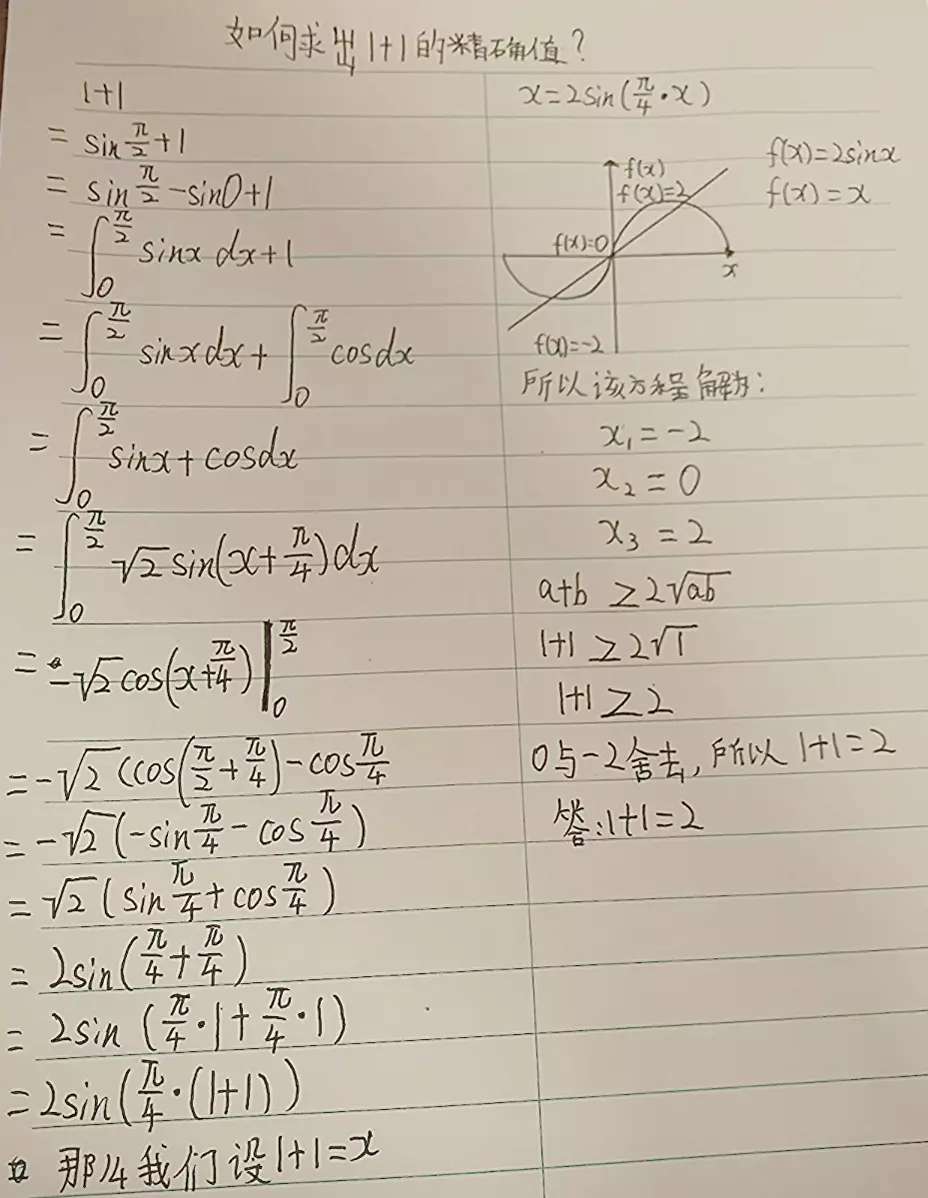 如何求出1+1的精确值?
1+1
= sin π/2 + 1
= sin π/2 - sin0+1
= ∫₀^(π/2) sinx dx+1
= ∫₀^(π/2) sinxdx + ∫₀^(π/2) cosdx
= ∫₀^(π/2) sinx+cosdx
= ∫₀^(π/2) √2 sin(x+π/4)dx
= -√2 cos(x+π/4)|₀^(π/2)
= -√2 (cos(π/2+π/4)-cosπ/4
= -√2 (-sinπ/4-cosπ/4)
= √2 (sinπ/4+cosπ/4)
= 2sin(π/4+π/4)
= 2sin(π/4·1+π/4·1)
= 2sin(π/4·(1+1))
那么我们设1+1=x
x=2sin(π/4·x)
f(x)=2sinx
f(x)=x
f(x)
f(x)=2
f(x)=0
x
f(x)=-2
所以该方程解为:
x₁=-2
x₂=0
x₃=2
a+b ≥2√ab
1+1 ≥2√1
1+1 ≥2
0与-2舍去,所以1+1=2
答:1+1=2